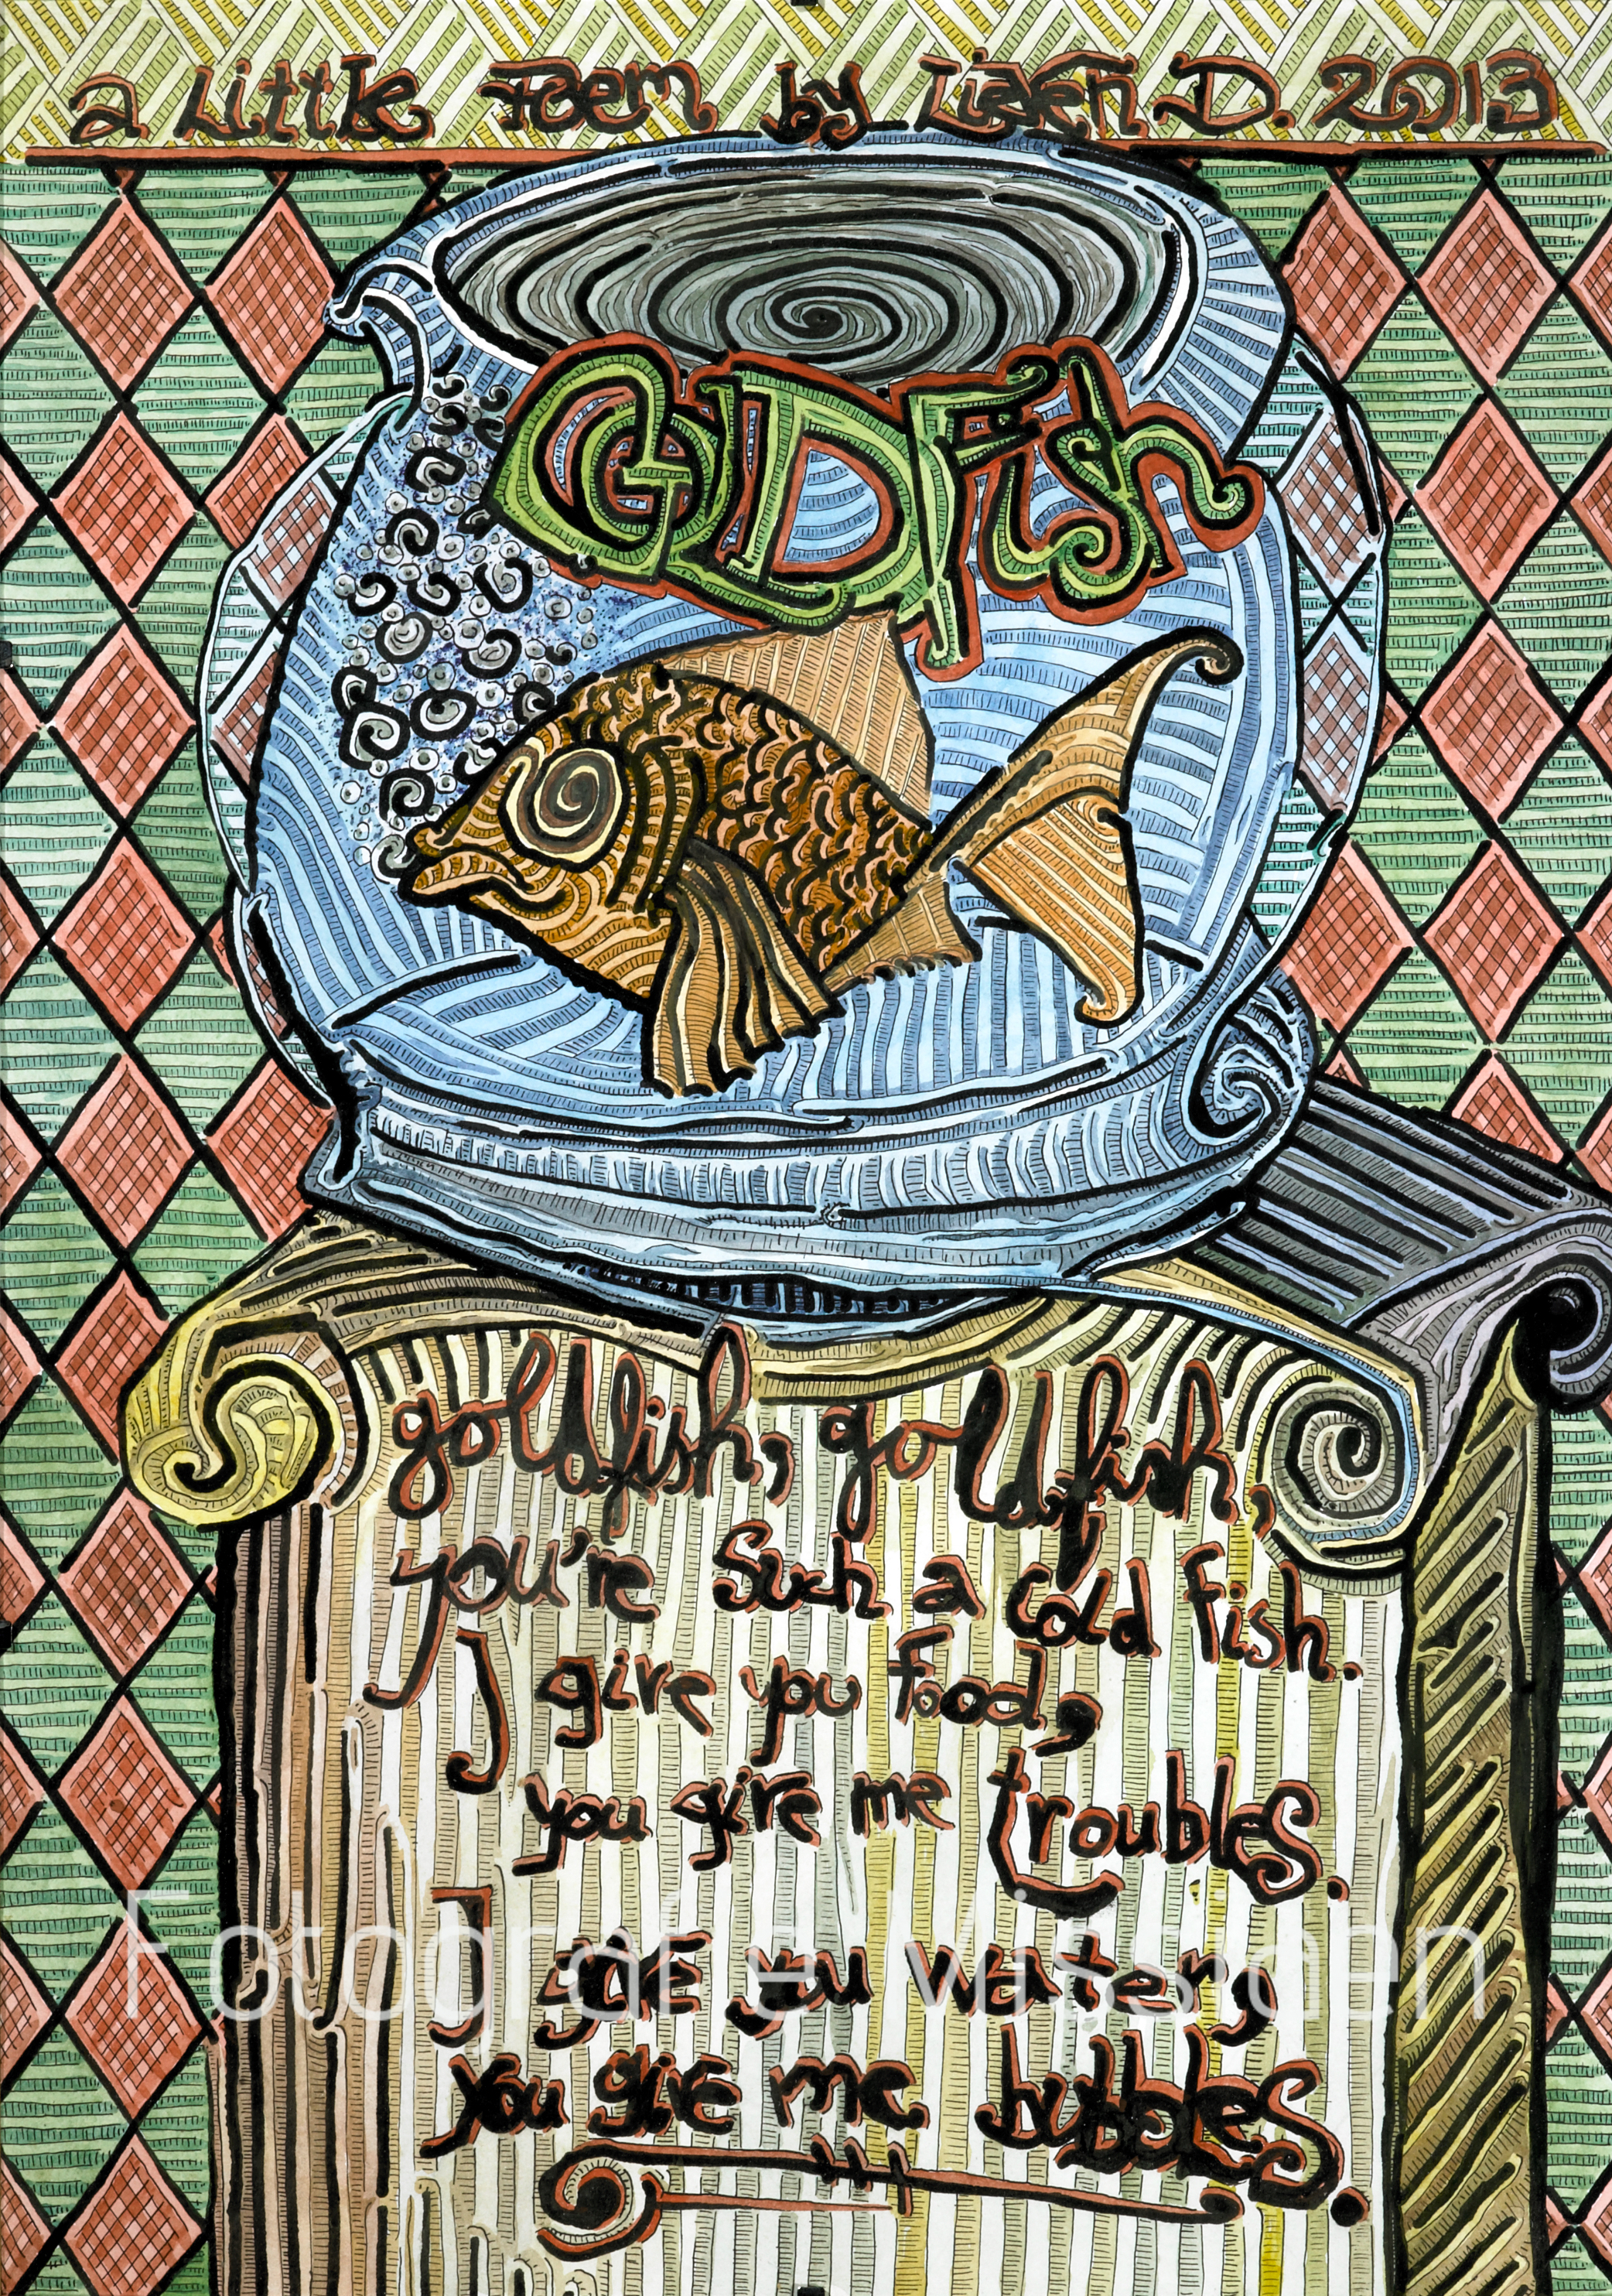 a Little Poem by Lisen D. 2013
GOLDFish
goldfish, goldfish,
you're Such a cold fish.
I give you Food,
you give me troubles.
I give you water,
you give me bubbles.
Fotograf e Missiaen